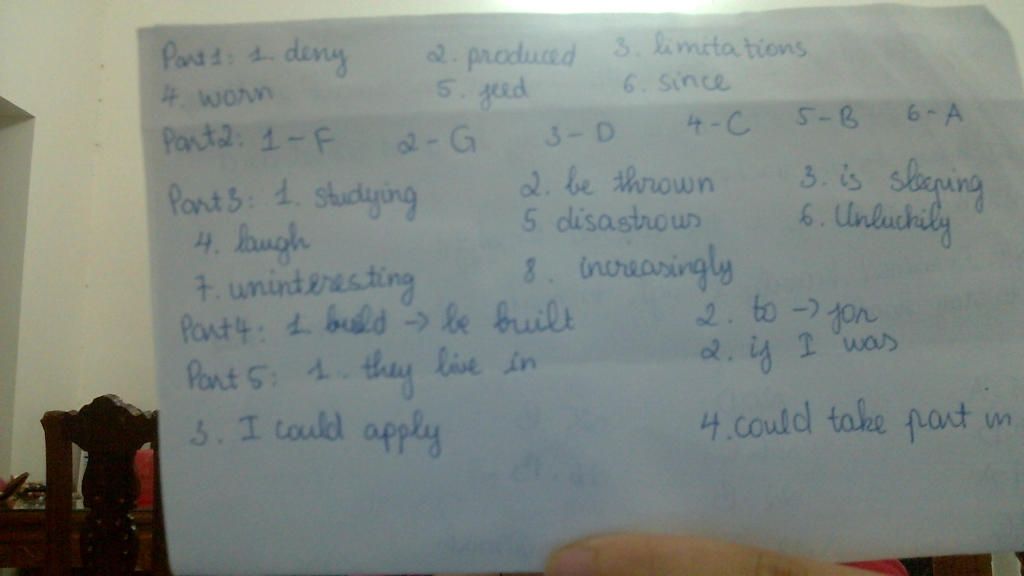 Part1: 1. deny 2. produced 3. limitations
4. worn 5. feed 6. since
Part2: 1-F 2-G 3-D 4-C 5-B 6-A
Part3: 1. studying 2. be thrown 3. is sleeping
4. laugh 5 disastrous 6. Unluckily
7. uninteresting 8. increasingly
Part4: 1. build -> be built 2. to -> for
Part 5: 1. they live in 2. if I was
3. I could apply 4. could take part in